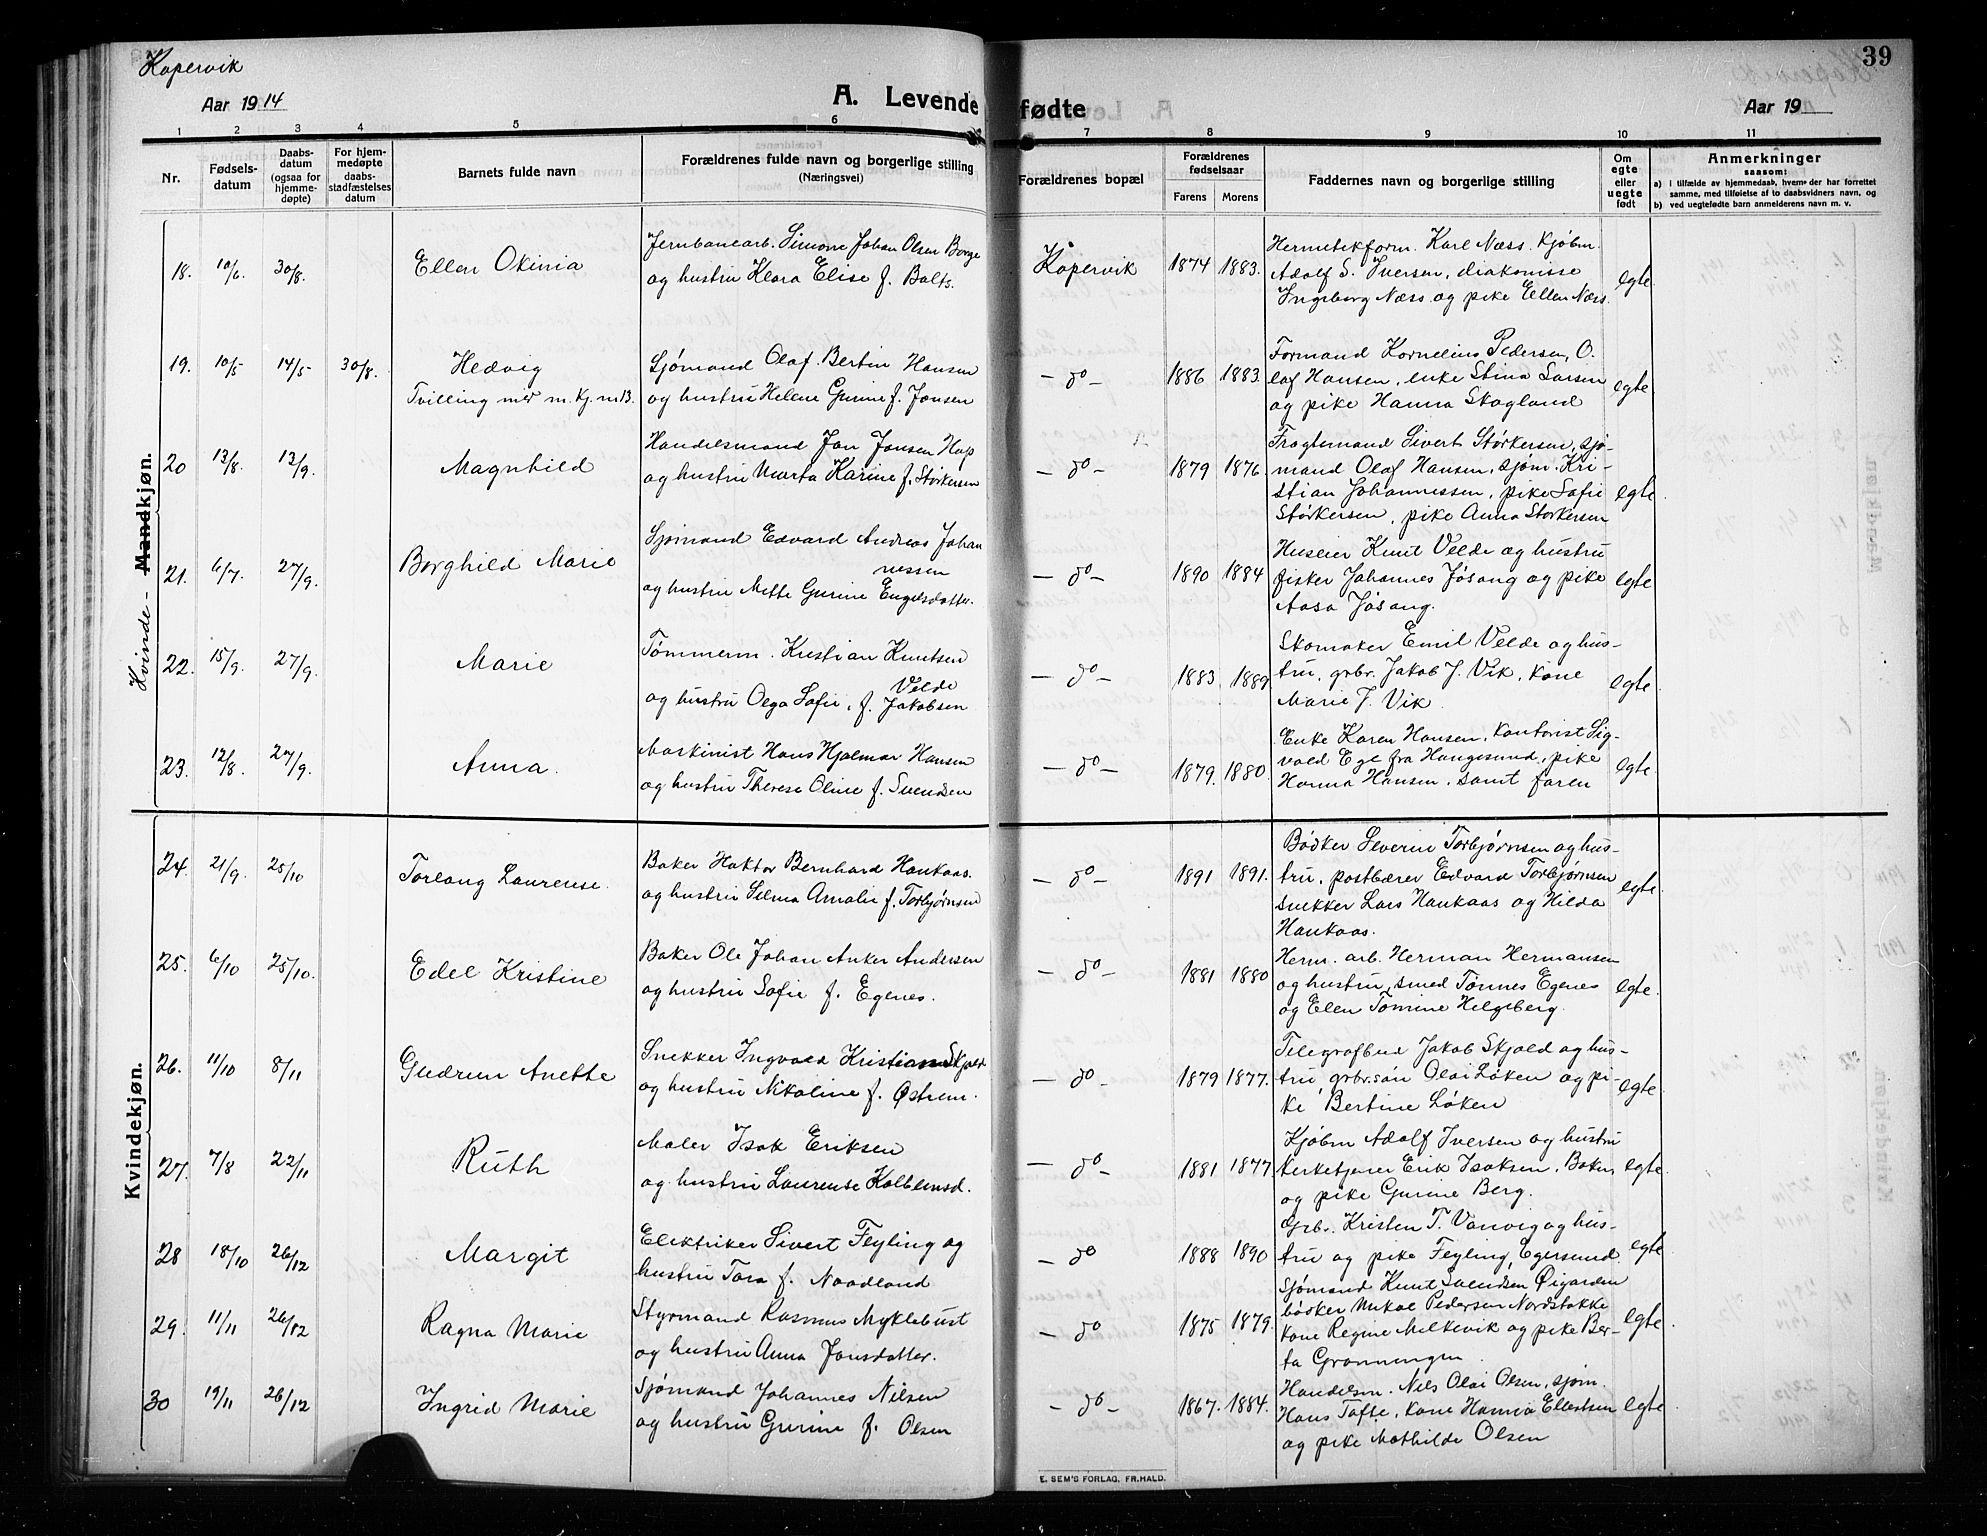 Kopervik
Aar 1914
A. Levende fødte
39
Aar 19
1 2 3 4 5 6 7 8 9 10 11
Nr.
Fødsels-
datum
Daabs-
datum
(ogsaa for
hjemme-
døpte)
For hjem-
medøpte
daabs-
stadfæstelses
datum
Barnets fulde navn
Forældrenes fulde navn og borgerlige stilling
(Næringsvei)
Forældrenes bopæl
Forældrenes
fødselsaar
Farens Morens
Faddernes navn og borgerlige stilling
Om
egte
eller
uegte
født
Anmerkninger
saasom:
a) i tilfælde av hjemmedaab, hvem der har forrettet
samme, med tilføielse af to daabsvidners navn, og
b) ved uegtefødte barn anmelderens navn m. v.
Hvinde- Mandkjøn.
18. 10/6. 30/8. Ellen Okinia
Jernbanearb. Simone Johan Olsen Borge
og hustru Klara Elise f. Balts.
Kopervik 1874 1883.
Hermetikform. Karl Næss. Kjøbm.
Adolf S. Iversen, diakonisse
Ingeborg Næss og pike Ellen Næss.
egte
19. 10/5- 14/5- 30/8. Hedvig
Tvilling med m. Kj. nr 13.
Sjømand Olaf Bertin Hansen
og hustru Helene Gurine f. Jonsen
- do - 1886 1883.
Formand Kornelius Pedersen, O.
laf Hansen, enke Stina Larsen
og pike Hanna Skogland
egte.
20 13/8. 13/9. Magnhild
Handelsmand Jon Jonsen Hop
og hustru Marta Karine f. Størkersen
- do - 1879 1876.
Fragtemand Sivert Størkersen, sjø-
mand Olaf Hansen, sjøm. Kri-
stian Johannessen, pike Sofie
Størkersen, pike Anna Størkersen
egte.
21. 6/7. 27/9. Borghild Marie
Sjømand Edvard Andreas Johan
nessen
og hustru Mette Gurine Engelsdatter.
- do - 1890 1884
Huseier Knut Velde og hustru
fisker Johannes Jøsang og pike
Aasa Jøsang.
egte
22. 15/9. 27/9. Marie
Tømmerm. Kristian Knutsen
Velde
og hustru Olga Sofie, f. Jakobsen
- do - 1883 1889
Skomaker Emil Velde og hus-
tru, grbr. Jakob J. Vik, kone
Marie J. Vik.
egte.
23. 12/8. 27/9. Anna.
Maskinist Hans Hjalmar Hansen
og hustru Therese Oline f. Svendsen
- do - 1879. 1880.
Enke Karen Hansen, kontorist Sig-
vald Ege fra Haugesund, pike
Hanna Hansen, samt faren
egte.
Kvindekjøn.
24. 21/9. 25/10 Torlaug Laurense.
Baker Haktor Bernhard Haukaas.
og hustru Selma Amalie f. Torbjørnsen
- do - 1891 1891.
Bødker Severin Torbjørnsen og hus-
tru, postbærer Edvard Torbjørnsen
snekker Lars Haukaas og Hilda
Haukaas.
egte.
25. 6/10 25/10. Edel Kristine
Baker Ole Johan Anker Andersen
og hustru Sofie f. Egenes.
- do - 1881 1880
Herm. arb. Herman Hermansen
og hustru, smed Tønnes Egenes
og Elen Tomine Helgeberg.
egte.
26. 11/10 8/11 Gudrun Anette
Snekker Ingvald Kristian Skjold
og hustru Nikoline f. Østrem.
- do - 1879 1877.
Telegrafbud Jakob Skjold og hus-
tru grbr.søn Olai Løken og pi-
ke Bertine Løken
egte.
27. 7/8 22/11 Ruth
Maler Isak Eriksen
og hustru Laurense Kolbensd.
- do - 1881 1877
Kjøbm Adolf Iversen og hustru
kirketjener Erik Isaksen, Boken
og pike Gurine Berg.
egte.
28 18/10 26/12 Margit
Elektriker Sivert Feyling og
hustru Tora f. Naadland
- do 1888 1890
Grb. Kristen T. Vanvig og hus-
tru og pike Feyling, Egersund
egte
29. 11/11 26/12 Ragna Marie
Styrmand Rasmus Myklebust
og hustru Anna Jonsdatter.
- do 1875 1879.
Sjømand Knut Svendsen Øigarden
bødker Mikal Pedersen Nordstokke
kone Regine Melkevik og pike Ber-
ta Grønningen
egte
30 19/11 26/12 Ingrid Marie
Sjømand Johannes Nilsen
og hustru Gurine f. Olsen
- do - 1867. 1884.
Handelsm. Nils Olai Olsen, sjøm.
Hans Tofte, kone Hanna Ellertsen
og pike Mathilde Olsen
egte
E. SEM'S FORLAG, FR.HALD.